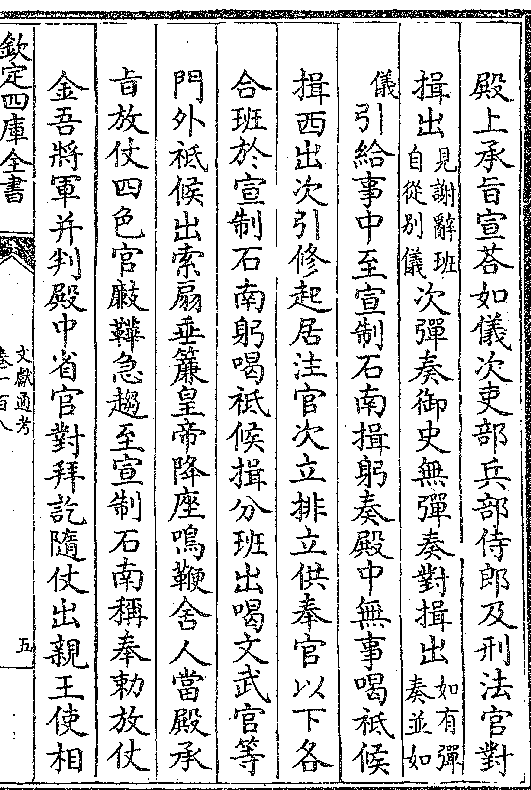 殿上承旨宣荅如儀次吏部兵部侍郎及刑法官對
揖出見謝辭班自從别儀次彈奏御史無彈奏對揖出如有彈奏並如
儀引給事中至宣制石南揖躬奏殿中無事喝祗候
揖西出次引修起居注官次立排立供奉官以下各
合班於宣制石南躬喝祗候揖分班出喝文武官等
門外祗候出索扇垂簾皇帝降座鳴鞭舍人當殿承
旨放仗四色官靸鞾急趨至宣制石南稱奉勅放仗
金吾將軍并判殿中省官對拜訖隨仗出親王使相
欽定四庫全書
文獻通考
卷一百八
五